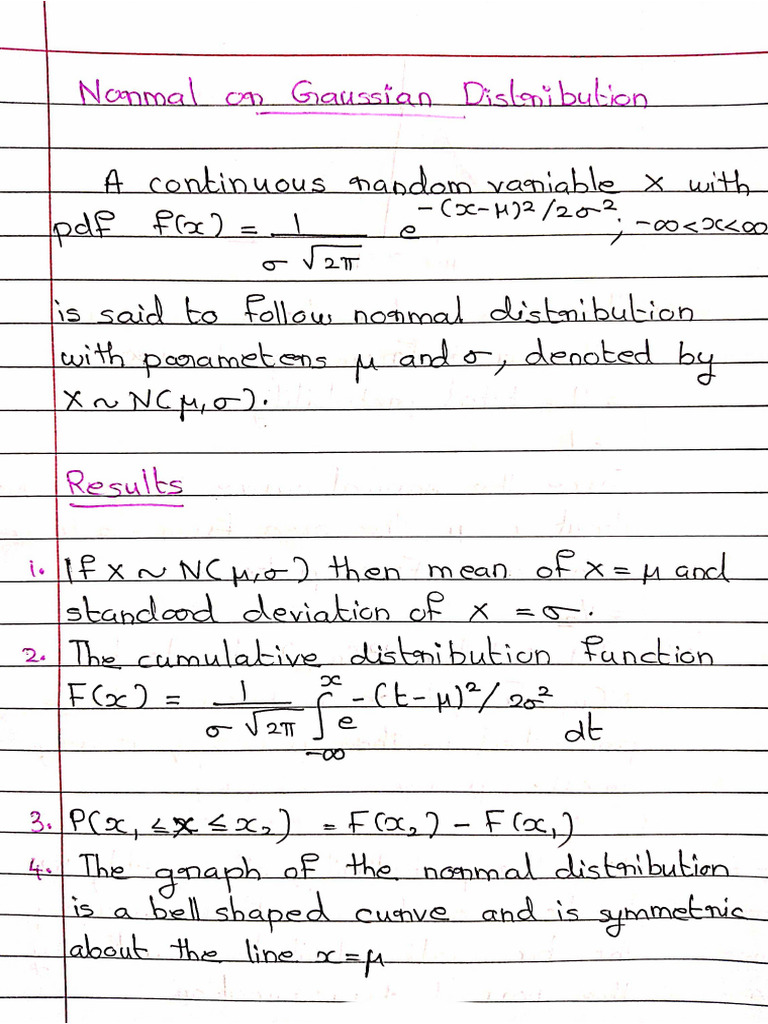 Normal or Gaussian Distribution
A continuous random variable X with
pdf f(x) = 1/(σ√2π) e^(-(x-μ)²/2σ²) ; -∞<x<∞
is said to follow normal distribution
with parameters μ and σ, denoted by
X ~ N(μ, σ).
Results
1. If X ~ N(μ, σ) then mean of X = μ and
standard deviation of X = σ.
2. The cumulative distribution function
F(x) = 1/(σ√2π) ∫_{-∞}^{x} e^(-(t-μ)²/2σ²) dt
3. P(x₁ ≤ X ≤ x₂) = F(x₂) - F(x₁)
4. The graph of the normal distribution
is a bell shaped curve and is symmetric
about the line x=μ